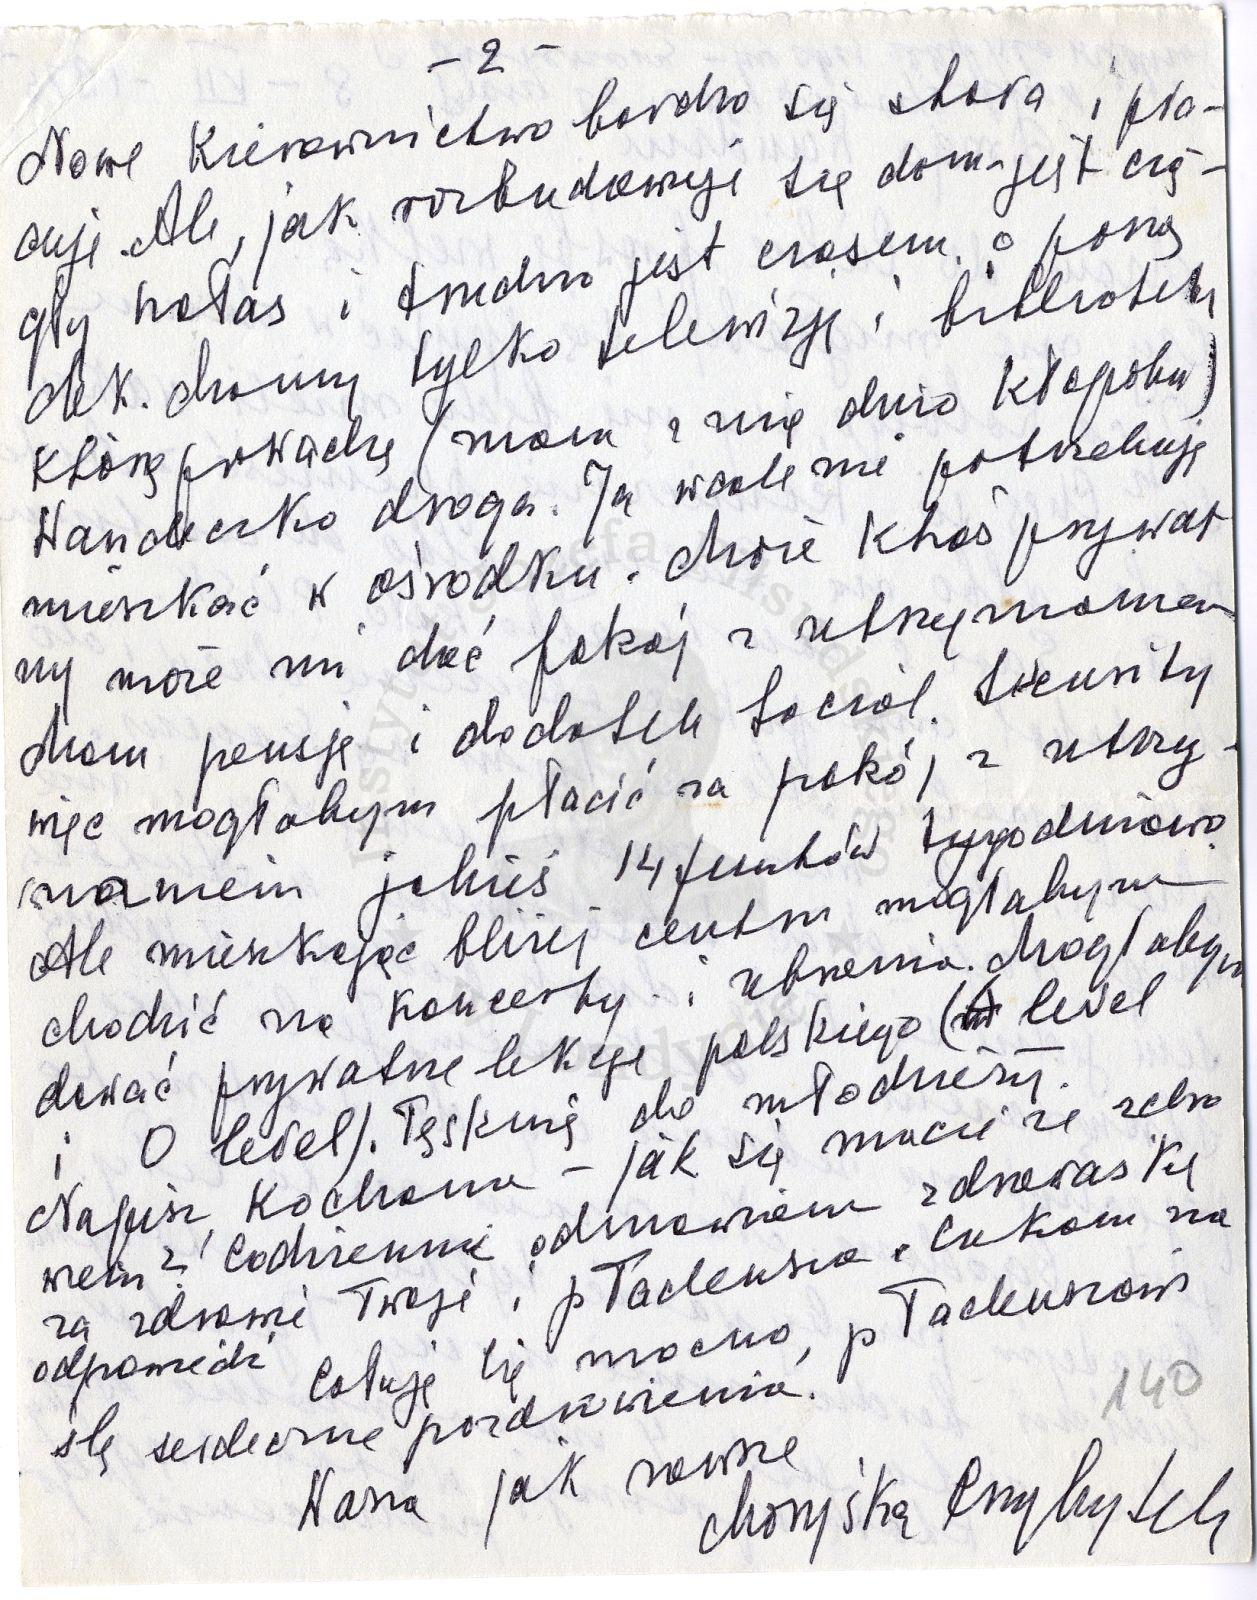 - 2 -
Nowe Kierownictwo bardzo się stara i pra-
cuje. Ale, jak rozbudowuje się dom - jest cią-
gły hałas i trudno jest czasem o porzą
dek. Mamy tylko telewizję i bibliotekę
którą prowadzę (mam z nią dużo kłopotu)
Wandeczko droga. Ja wcale nie potrzebuję
mieszkać w ośrodku. Może ktoś prywat
ny może mi dać pokój z utrzymaniem
Mam pensję i dodatek Social. Security
więc mogłabym płacić za pokój z utrzy-
maniem jakieś 14 funtów tygodniowo
Ale mieszkając bliżej centrum mogłabym
chodzić na koncerty i zebrania. Mogłabym
dawać prywatne lekcje polskiego (A level
i O level). Tęsknię do młodzieży.
Napisz Kochana - jak się macie ze zdro
wiem? Codziennie odmawiam zdrowaśkę
za zdrowie Twoje i p Tadeusza. Czekam na
odpowiedź
Całuję Cię mocno, p Tadeuszowi
ślę serdeczne pozdrowienia.
140
Wasza jak zawsze
Maryśka Przybytek
Instytut Józefa Piłsudskiego